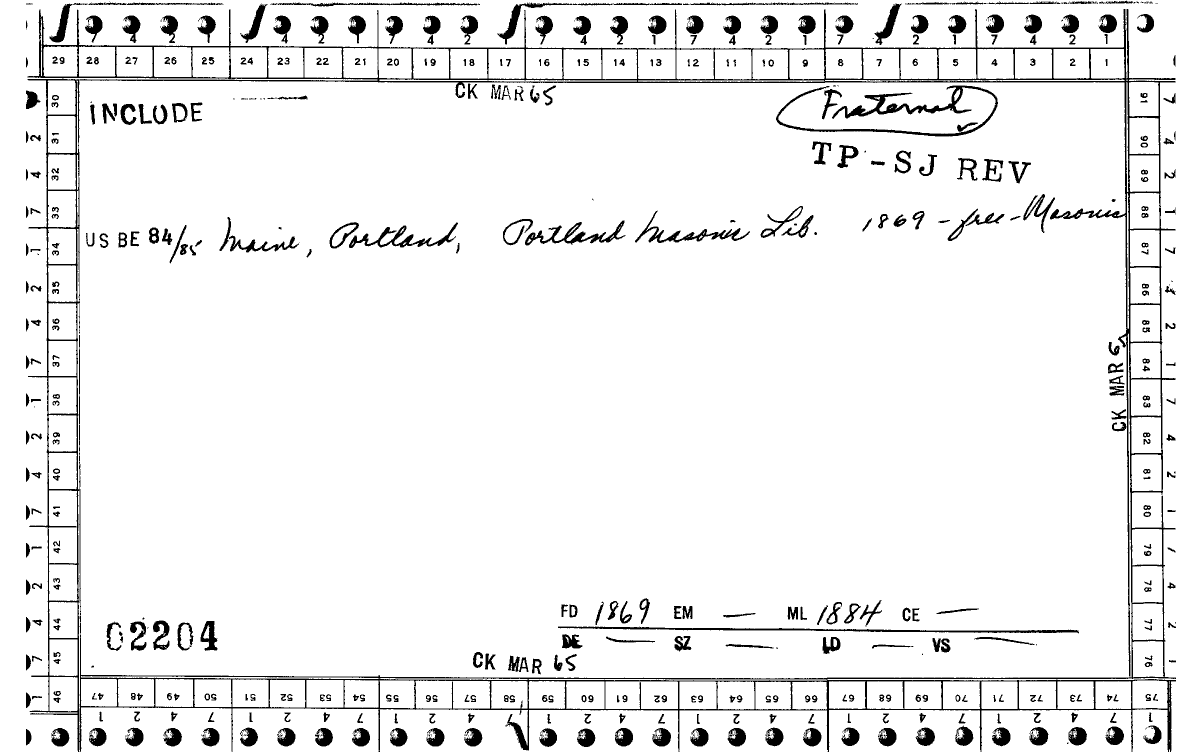 7 4 2 1 7 4 2 1 7 4 2 1 7 4 2 1 7 4 2 1 7 4 2 1 7 4 2 1
29 28 27 26 25 24 23 22 21 20 19 18 17 16 15 14 13 12 11 10 9 8 7 6 5 4 3 2 1
CK MAR 65
INCLUDE
Fraternal
TP-SJ REV
US BE 84/85 Maine, Portland, Portland Masonic Lib. 1869 - free - Masonis
CK MAR 6
FD 1869 EM — ML 1884 CE —
DE — SZ — LD — VS —
02204
CK MAR 65
30 31 32 33 34 35 36 37 38 39 40 41 42 43 44 45 46
91 90 89 88 87 86 85 84 83 82 81 80 79 78 77 76 75
47 48 49 50 51 52 53 54 55 56 57 58 59 60 61 62 63 64 65 66 67 68 69 70 71 72 73 74 75
1 2 4 7 1 2 4 7 1 2 4 7 1 2 4 7 1 2 4 7 1 2 4 7 1 2 4 7 1